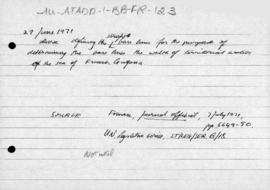 AU-ATADD-1-BB-FR-123
29 June 1971
straight
decree defining the base lines for the purpose of
determining the base lines the width of territorial waters
of the sea of France, Guyana
SOURCE France, Journal officiel, 7 July 1971,
pp. 6649-50.
UN, Legislative series, ST/LEG/SER.B/18